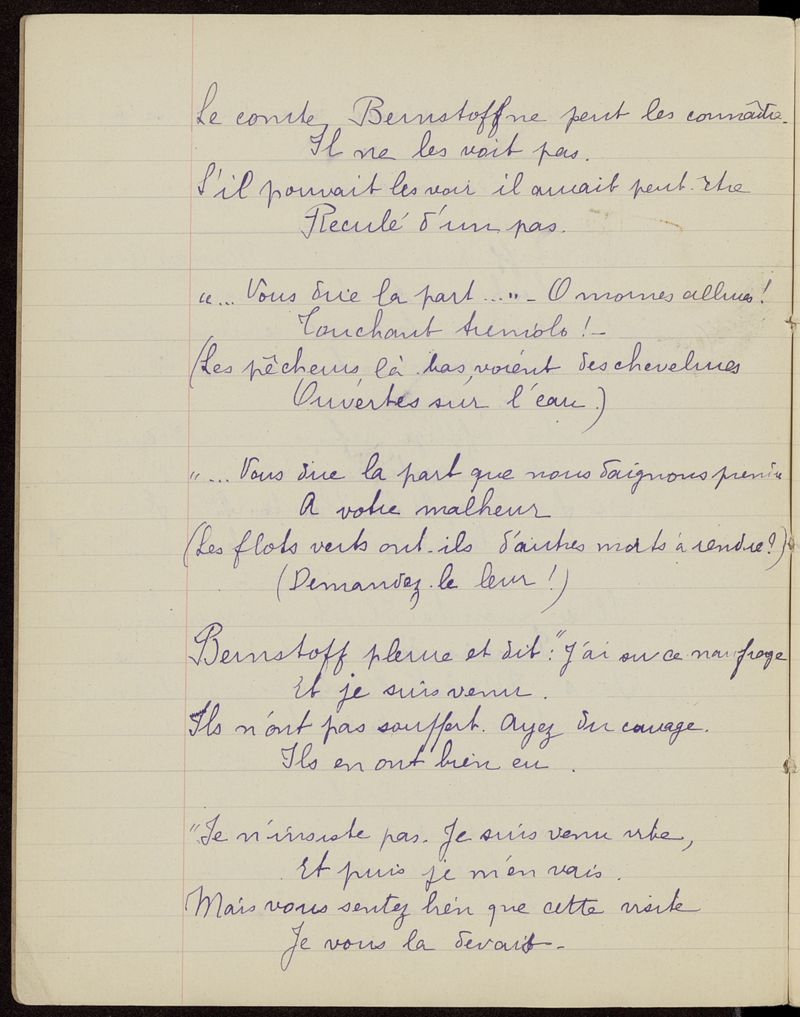 Le comte Bernstoff ne peut les connaître.
Il ne les voit pas.
S'il pouvait les voir il aurait peut-être
Reculé d'un pas.
"... Vous dire la part ..." - O mornes allures !
Touchant tremolo ! -
(Les pêcheurs là-bas, voient des chevelures
Ouvertes sur l'eau.)
"... Vous dire la part que nous daignons prendre
A votre malheur
(Les flots verts ont-ils d'autres morts à rendre ?)
(Demandez-le leur !)
Bernstoff pleure et dit : "J'ai su ce naufrage
Et je suis venu.
Ils n'ont pas souffert. Ayez du courage.
Ils en ont bien eu.
"Je n'insiste pas. Je suis venu vite,
Et puis je m'en vais.
Mais vous sentez bien que cette visite
Je vous la devais -